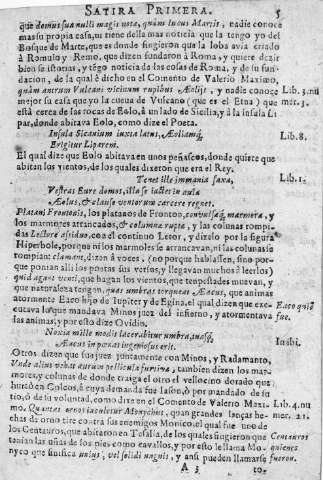 SATIRA PRIMERA. 5
que domus sua nulli magis nota, quàm lucus Martis, nadie conoce
mas su propia casa, ni tiene della mas noticia que la tengo yo del
Bosque de Marte, que es donde fingieron que la loba avia criado
à Romulo y Remo, que dizen fundaron à Roma, y quiere dezir
bien se istorias, y tẽgo noticia de las cosas de Roma, y de su fun-
dacion, de la qual è dicho en el Comento de Valerio Maximo,
quàm antrum Vulcani vicinum rupibus Æoliis, y nadie conoce Lib. 3. nu
mejor su casa que yo la cueva de Vulcano (que es el Etna) que mer. 3.
está cerca de las rocas de Eolo, à un lado de Sicilia, y à la insula Li
par, donde abitava Eolo, como dize el Poeta.
Insula Sicanium iuxta latus, Æoliamq, Lib. 8.
Erigitur Liparem.
El qual dize que Eolo abitava en unos peñascos, donde quiere que
abitan los vientos, de los quales dizeron que era el Rey.
Tenet ille immania saxa, Lib. 1.
Vestras Eure domos, illa se iactet in aula
Æolus, & clauso ventorum carcere regnet.
Platani Frontonis, los platanos de Fronton, convulsaq, marmora, y
los marmores arrancados, & columnæ ruptæ, y las colunas rompi-
das Lectore assiduo, con el continuo Letor, y dizelo por la figura
Hiperbole, porque ni los marmoles se arrancavan, ni las colunas se
rompian: clamant, dizen à voces, (no porque hablassen, sino por-
que ponian alli los poetas sus versos, y llegavan muchos à leerlos)
quid agant venti, que hagan los vientos, que tenpestades muevan, y
que naturaleza tengan, quas umbras torqueat Æacus, que animas
atormente Eaco hijo de Iupiter y de Egina, el qual dizen que exe- Eaco quiẽ
cutava lo que mandava Minos juez del infierno, y atormentava fue.
las animas, y por esto dize Ovidio.
Noxia mille modis lacerabitur umbra, tuasq, In ibi.
Æacus in pœnas ingeniosus erit.
Otros dizen que fue juez juntamente con Minos, y Radamanto,
Vnde alius vehat aurum pelliculæ furtivæ, tambien dizen los mar-
mores, y colunas de donde traiga el otro el vellocino dorado que
hurtò en Colcos, à cuya demanda fue Iason, ò por mandado de su
tio, ò de su voluntad, como dize en el Comento de Valerio Maxi- Lib. 4. nu
mo. Quantas ornos iaculetur Monychus, quan grandes lanças he- mer. 21.
chas de orno tire contra sus enemigos Monico, el qual fue uno de
los Centauros, que abitaron en Tesalia, de los quales fingieron que Centauros
tenian las uñas de los pies, como cavallos, y por esto le llama Mo- quienes
nyco que sinifica unius, vel solidi unguis, y ansi pueden llamarse fueron.
A 3 to.